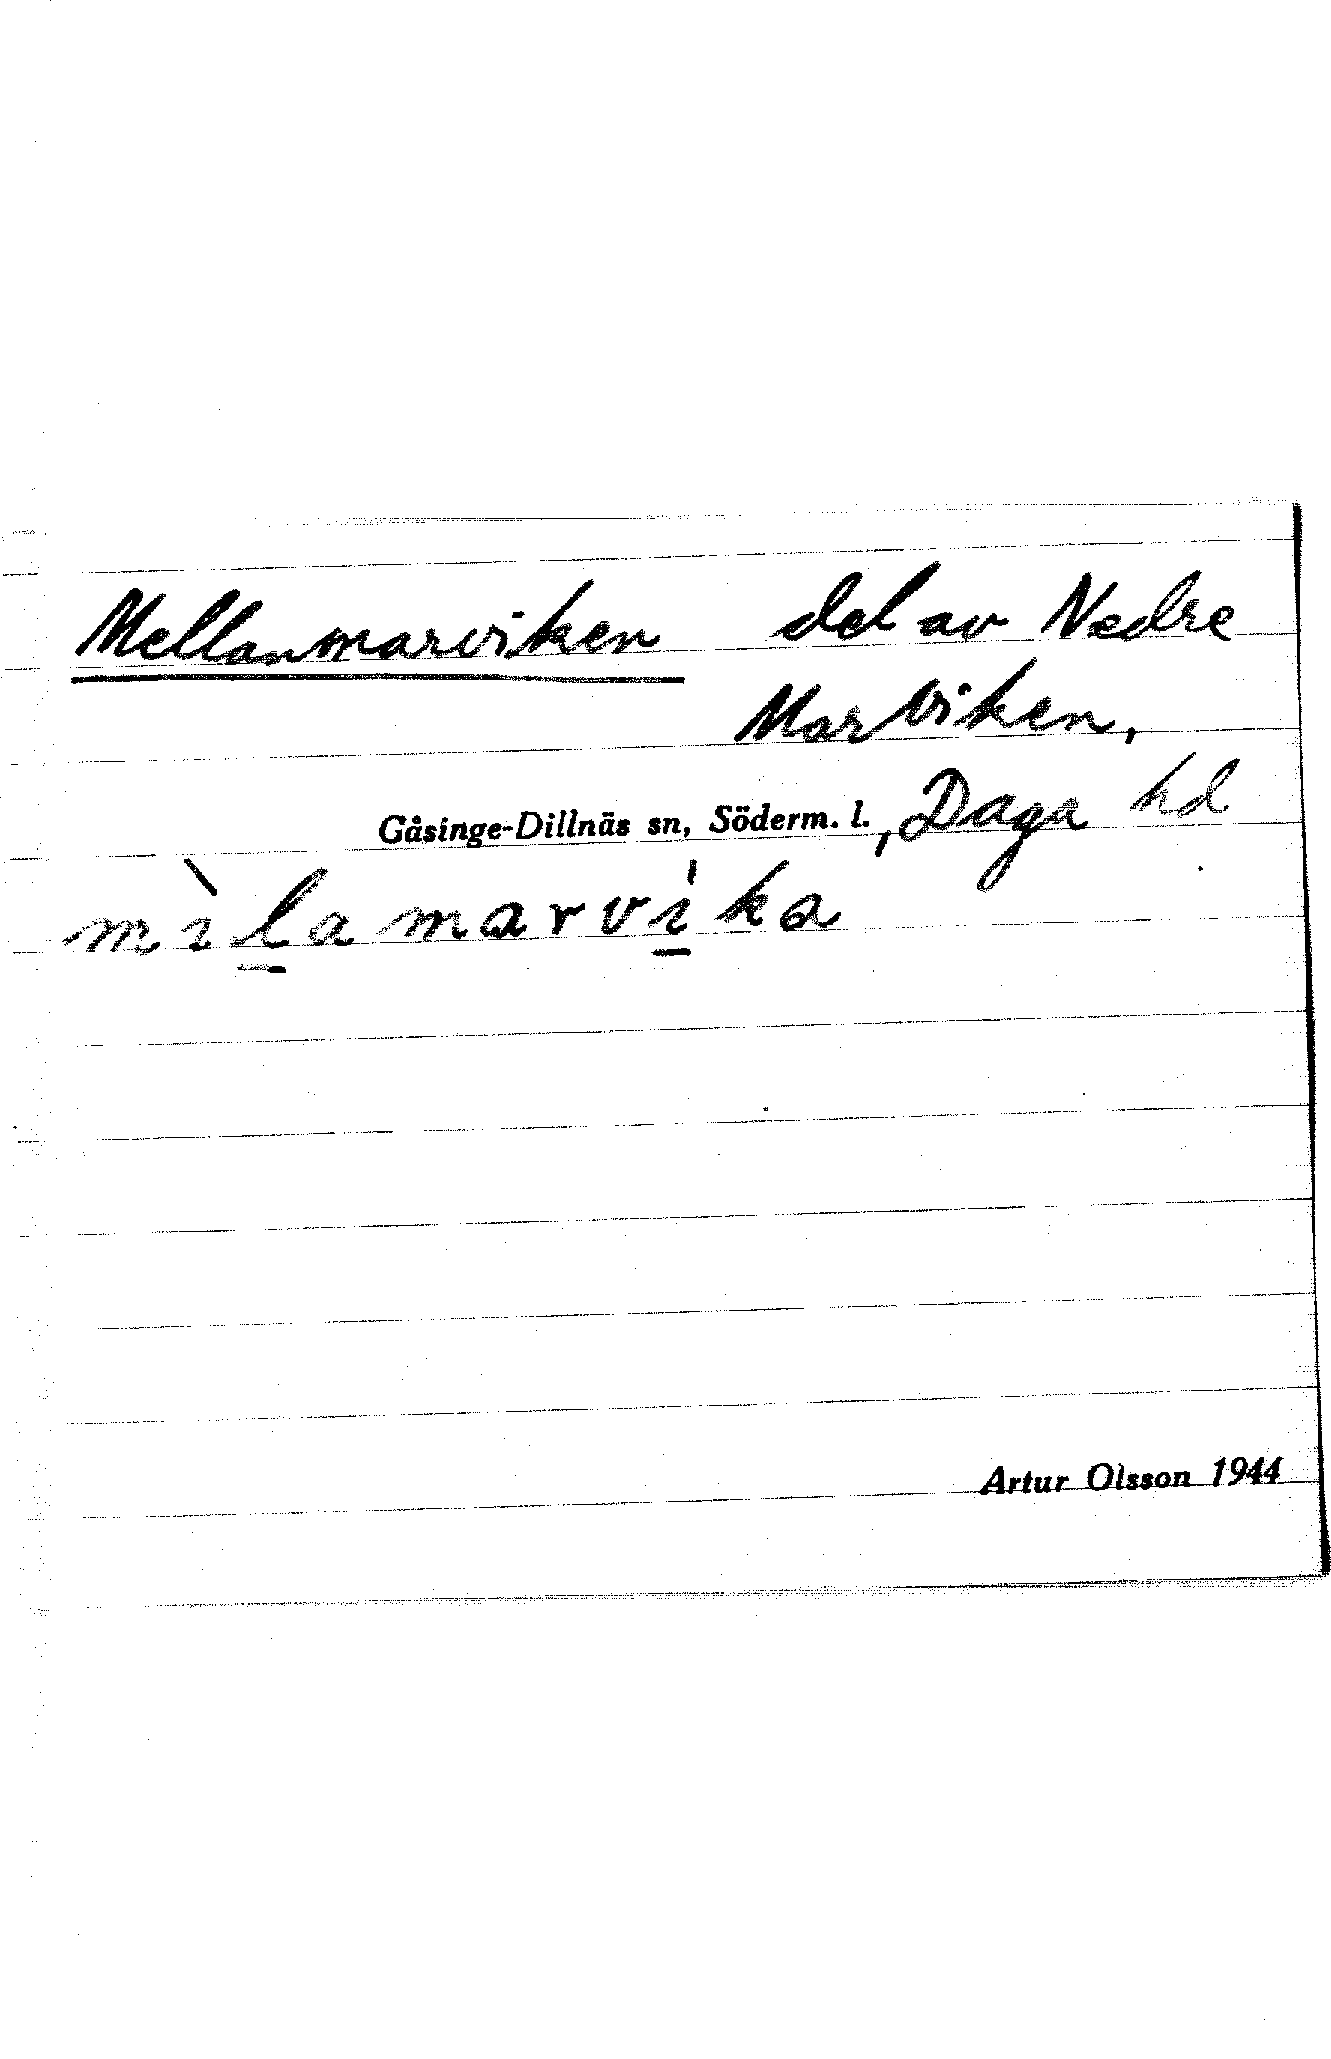 Mellanmarviken del av Nedre
Marviken,
Gåsinge-Dillnäs sn, Söderm. l., Daga hd
mìlamarvika
Artur Olsson 1944